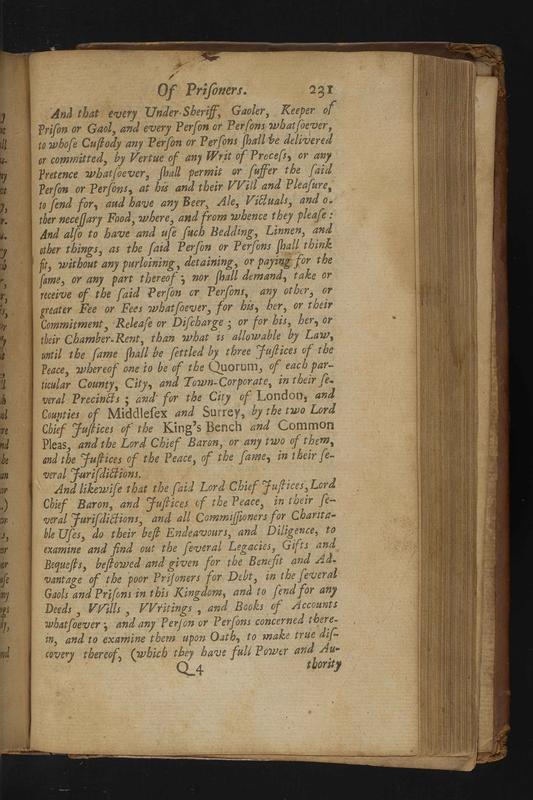 Of Priſoners. 231
And that every Under-Sheriff, Gaoler, Keeper of
Priſon or Gaol, and every Perſon or Perſons whatſoever,
to whoſe Cuſtody any Perſon or Perſons ſhall be delivered
or committed, by Vertue of any Writ of Proceſs, or any
Pretence whatſoever, ſhall permit or ſuffer the ſaid
Perſon or Perſons, at his and their VVill and Pleaſure,
to ſend for, aud have any Beer, Ale, Victuals, and o-
ther neceſſary Food, where, and from whence they pleaſe:
And alſo to have and uſe ſuch Bedding, Linnen, and
other things, as the ſaid Perſon or Perſons ſhall think
fit, without any purloining, detaining, or paying for the
ſame, or any part thereof; nor ſhall demand, take or
receive of the ſaid Perſon or Perſons, any other, or
greater Fee or Fees whatſoever, for his, her, or their
Commitment, Releaſe or Diſcharge; or for his, her, or
their Chamber-Rent, than what is allowable by Law,
until the ſame ſhall be ſettled by three Juſtices of the
Peace, whereof one to be of the Quorum, of each par-
ticular County, City, and Town-Corporate, in their ſe-
veral Precincts; and for the City of London, and
Counties of Middleſex and Surrey, by the two Lord
Chief Juſtices of the King's Bench and Common
Pleas, and the Lord Chief Baron, or any two of them,
and the Juſtices of the Peace, of the ſame, in their ſe-
veral Juriſdictions.
And likewiſe that the ſaid Lord Chief Juſtices, Lord
Chief Baron, and Juſtices of the Peace, in their ſe-
veral Juriſdictions, and all Commiſſioners for Charita-
ble Uſes, do their beſt Endeavours, and Diligence, to
examine and find out the ſeveral Legacies, Gifts and
Bequeſts, beſtowed and given for the Benefit and Ad-
vantage of the poor Priſoners for Debt, in the ſeveral
Gaols and Priſons in this Kingdom, and to ſend for any
Deeds, VVills, VVritings, and Books of Accounts
whatſoever; and any Perſon or Perſons concerned there-
in, and to examine them upon Oath, to make true diſ-
covery thereof, (which they have full Power and Au-
Q 4 thority